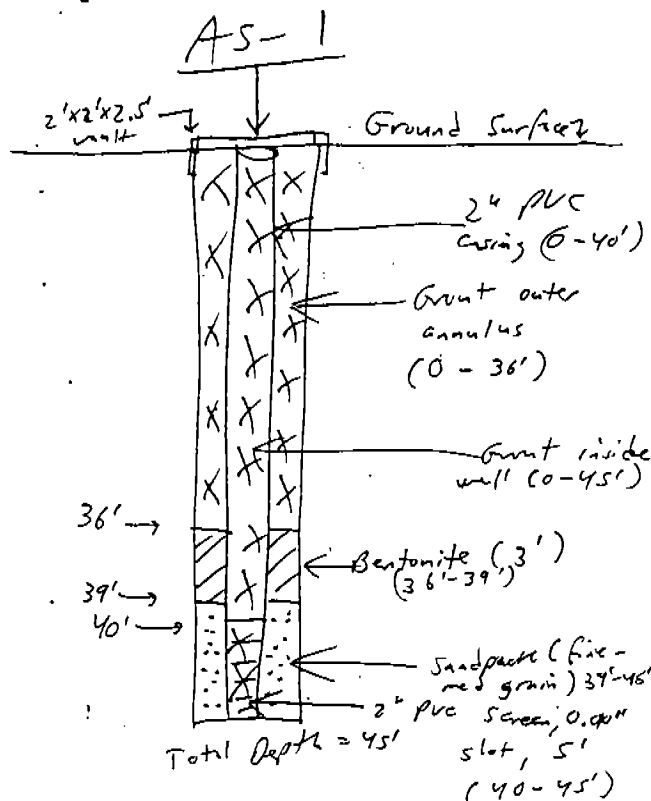 AS-1
2'x2'x2.5'
vault
Ground Surface
2" PVC
casing (0-40')
Grout outer
annulus
(0-36')
Grout inside
well (0-45')
36'
Bentonite (3')
(36'-39')
39'
40'
Sandpack (fine-
med grain) 39'-45'
2" PVC screen,
slot, 5'
(40-45')
Total Depth = 45'